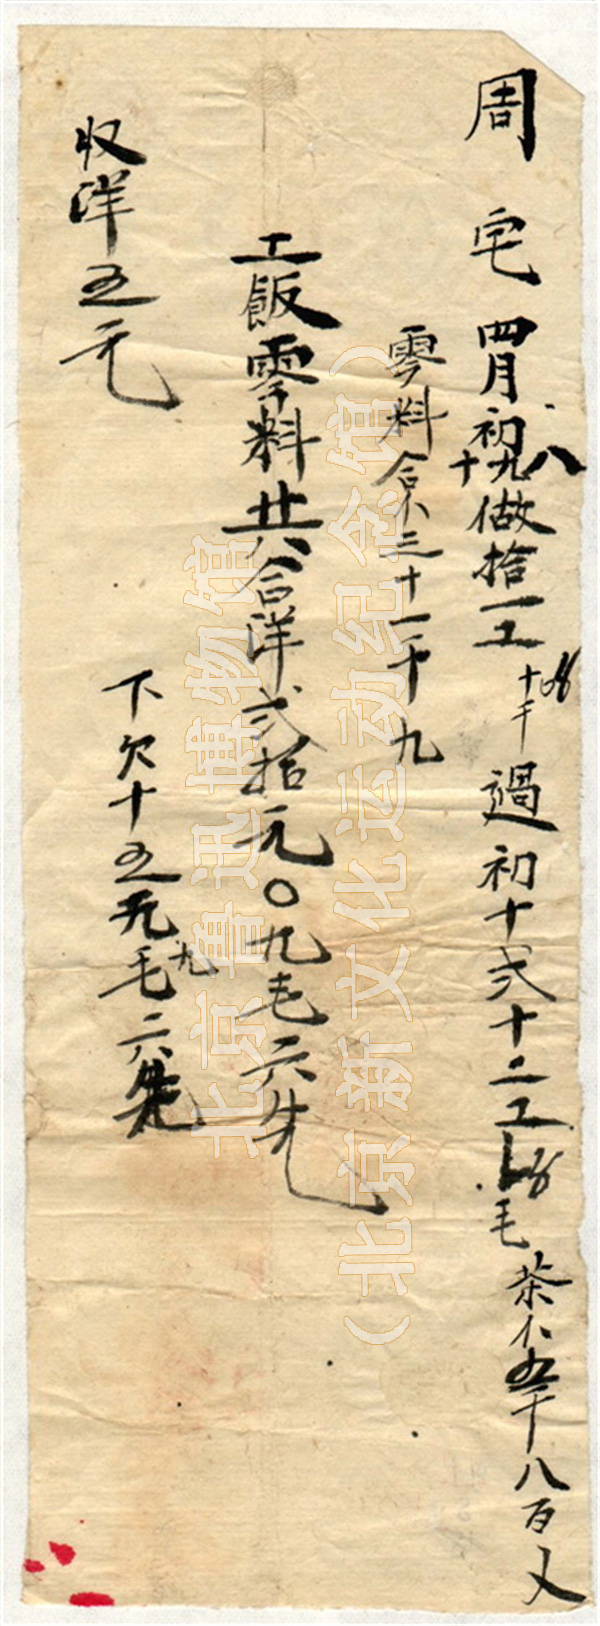 周宅四月初八九十做拾一工十千過初十弍十二工毛茶仒五千八百文
零料合仒三十一千九
工飯零料廿八合洋弍拾元〇九毛六先
下欠十五元九毛六先
収洋五元
北京鲁迅博物馆
（北京新文化运动纪念馆）